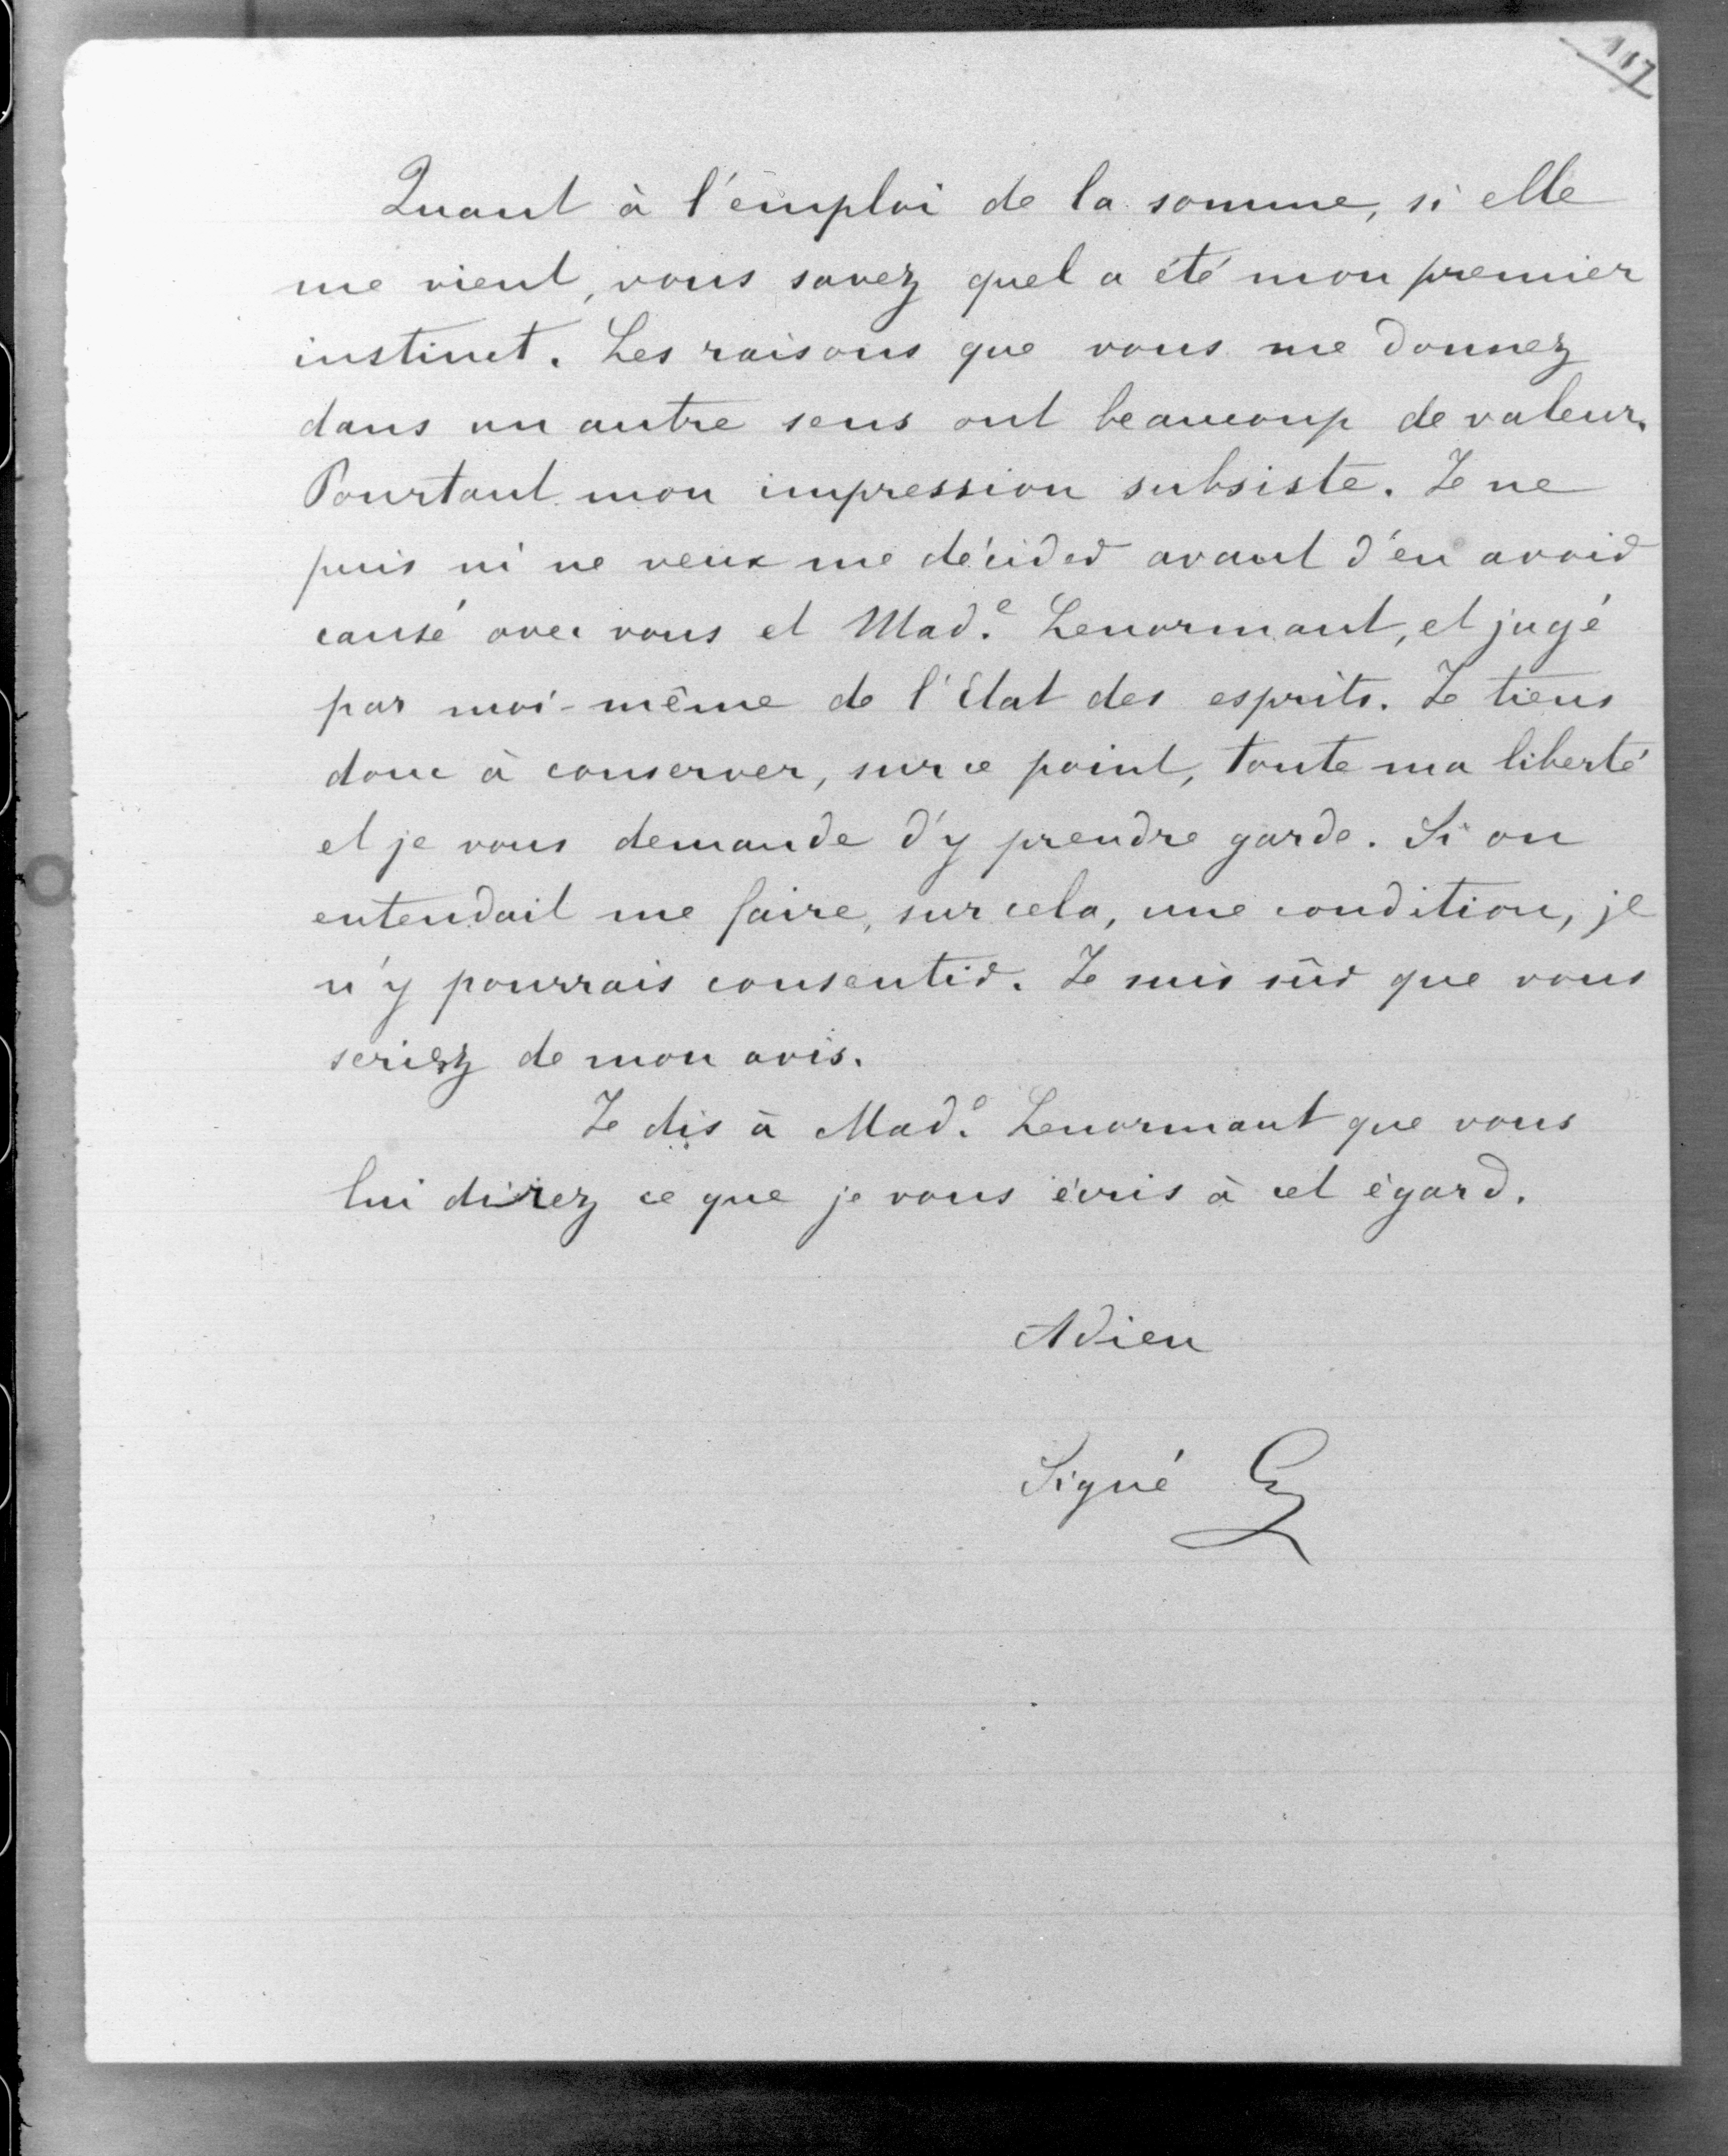 117
Quant à l'emploi de la somme, si elle
me vient, vous savez quel a été mon premier
instinct. Les raisons que vous me donnez
dans un autre sens ont beaucoup de valeur.
Pourtant mon impression subsiste. Je ne
puis ni ne veux me décider avant d'en avoir
causé avec vous et Mad.e Lenormant, et jugé
par moi-même de l'état des esprits. Je tiens
donc à conserver, sur ce point, toute ma liberté
et je vous demande d'y prendre garde. Si on
entendait me faire, sur cela, une condition, je
n'y pourrais consentir. Je suis sûr que vous
seriez de mon avis.
Je dis à Mad.e Lenormant que vous
lui direz ce que je vous écris à cet égard.
Adieu
Signé G